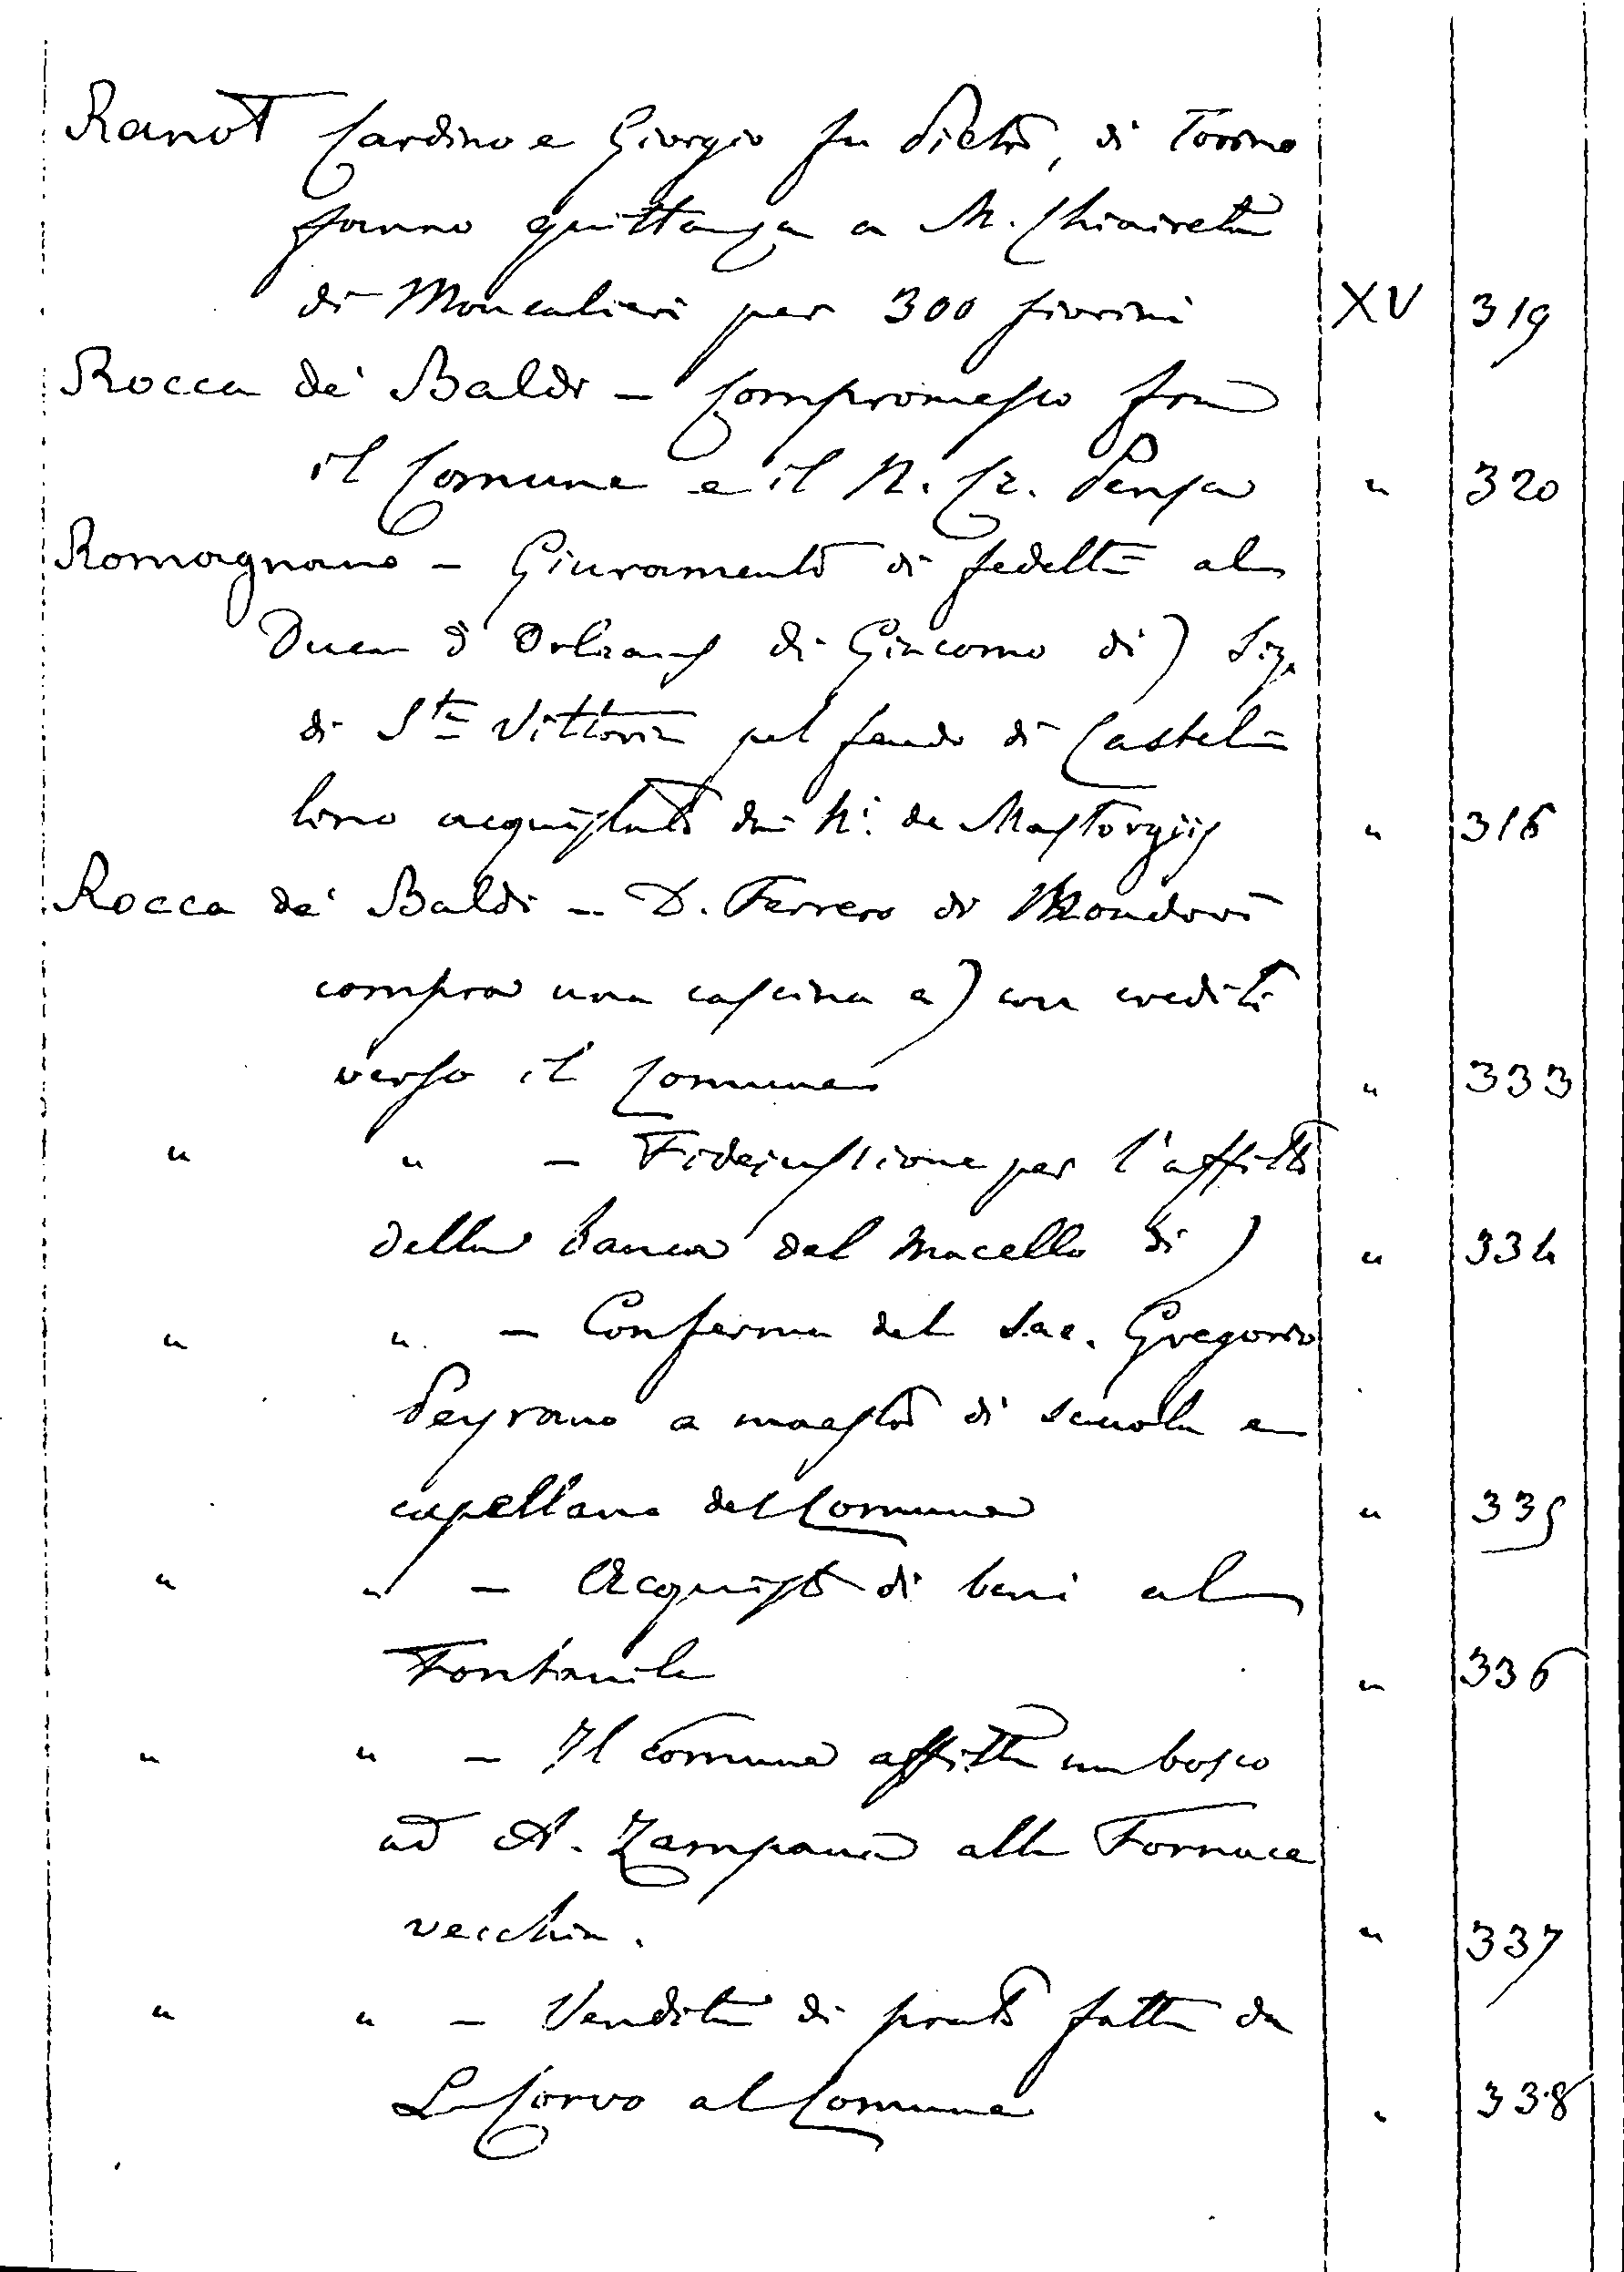 Ranot Cardino e Giorgio fu Pietro, di Torino
fanno quittanza a M. Chiaireta
di Moncalieri per 300 fiorini XV 319
Rocca de' Baldi - Compromesso fra
il Comune e il N. Cz. Pensa " 320
Romagnano - Giuramento di fedeltà al
Duca d'Orleans di Giacomo di) Sig.
di Sta Vittoria pel feudo di Castel=
lino acquistato dai Ni. de Mastorgiis " 316
Rocca de' Baldi - D. Ferrero di Mondovì
compra una cascina a) con crediti
verso il Comune " 333
" " - Fideiussione per l'affitto
della banca del Macello di) " 334
" " - Conferma del Sac. Gregorio
Peyrano a maestro di scuola e
capellano del Comune " 335
" " - Acquisto di beni al
Fontanile " 336
" " - Il comune affitta un bosco
ad A. Zampana alla Fornace
vecchia. " 337
" " - Vendita di prato fatta da
L. Corvo al Comune " 338